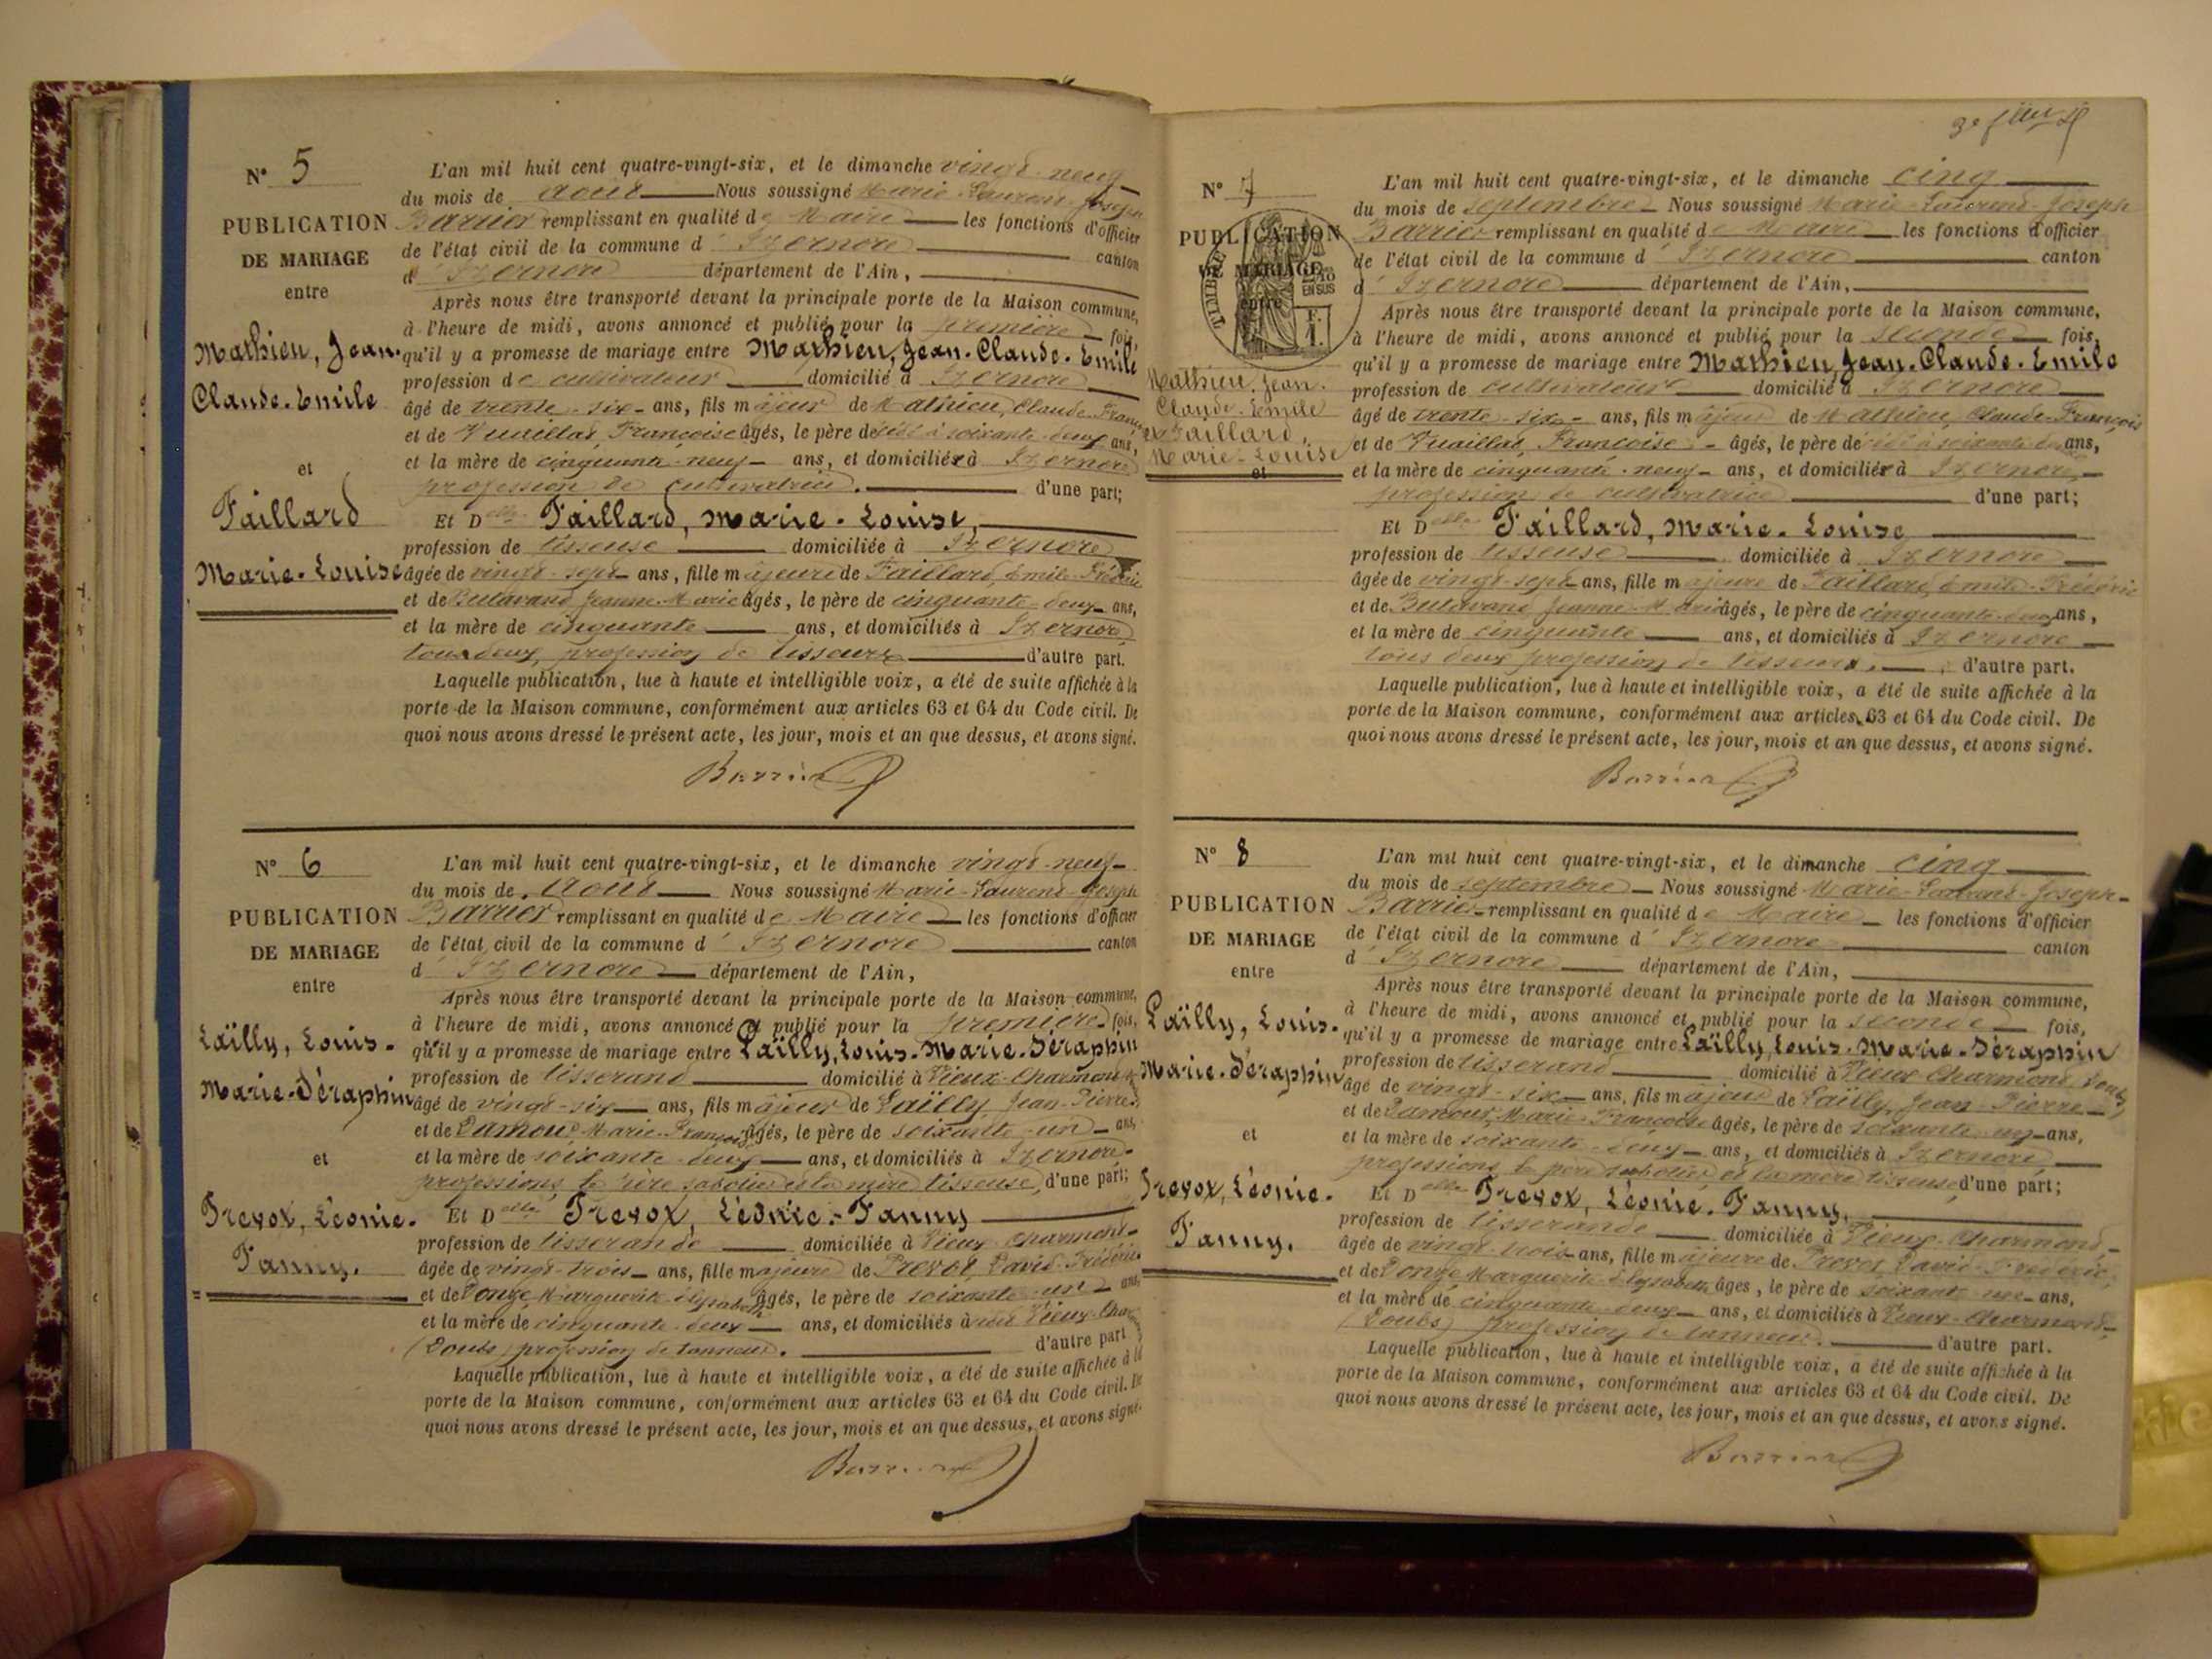 N° 5
PUBLICATION
DE MARIAGE
entre
Mathieu, Jean-
Claude-Emile
et
Faillard
Marie-Louise
L'an mil huit cent quatre-vingt-six, et le dimanche vingt-neuf
du mois de août Nous soussigné Marie-Laurent-Joseph
Barrier remplissant en qualité de Maire les fonctions d'officier
de l'état civil de la commune d'Izernore canton
d'Izernore département de l'Ain,
Après nous être transporté devant la principale porte de la Maison commune,
à l'heure de midi, avons annoncé et publié pour la première fois,
qu'il y a promesse de mariage entre Mathieu, Jean-Claude-Emile
profession de cultivateur domicilié à Izernore
âgé de trente-six ans, fils majeur de Mathieu, Claude-Franc
et de Vuaillat, Françoise âgés, le père décédé à soixante-deux ans,
et la mère de cinquante-neuf ans, et domiciliée à Izernore
profession de cultivatrice. d'une part;
Et Delle Faillard, Marie-Louise,
profession de tisseuse domiciliée à Izernore
âgée de vingt-sept ans, fille majeure de Faillard, Emile-Frédéric
et de Butavand Jeanne-Marie âgés, le père de cinquante-deux ans,
et la mère de cinquante ans, et domiciliés à Izernore
tous deux profession de tisseurs d'autre part.
Laquelle publication, lue à haute et intelligible voix, a été de suite affichée à la
porte de la Maison commune, conformément aux articles 63 et 64 du Code civil. De
quoi nous avons dressé le présent acte, les jour, mois et an que dessus, et avons signé.
Barrier
N° 6
PUBLICATION
DE MARIAGE
entre
Laïlly, Louis-
Marie-Séraphin
et
Prevot, Léonie-
Fanny.
L'an mil huit cent quatre-vingt-six, et le dimanche vingt-neuf
du mois de août Nous soussigné Marie-Laurent-Joseph
Barrier remplissant en qualité de Maire les fonctions d'officier
de l'état civil de la commune d'Izernore canton
d'Izernore département de l'Ain,
Après nous être transporté devant la principale porte de la Maison commune,
à l'heure de midi, avons annoncé et publié pour la première fois,
qu'il y a promesse de mariage entre Laïlly, Louis-Marie-Séraphin
profession de tisserand domicilié à Vieux-Charmont
âgé de vingt-six ans, fils majeur de Laïlly, Jean-Pierre
et de Lamour Marie-Françoise âgés, le père de soixante-un ans,
et la mère de soixante-deux ans, et domiciliés à Izernore
professions, le père sabotier et la mère tisseuse, d'une part;
Et Delle Prevot, Léonie-Fanny
profession de tisserande domiciliée à Vieux-Charmont
âgée de vingt-trois ans, fille majeure de Prevot, David-Frédéric
et de Ponze, Marguerite-Elysabeth âgés, le père de soixante-un ans,
et la mère de cinquante-deux ans, et domiciliés à Vieux-Char
(Doubs) profession de tanneur. d'autre part
Laquelle publication, lue à haute et intelligible voix, a été de suite affichée à la
porte de la Maison commune, conformément aux articles 63 et 64 du Code civil. De
quoi nous avons dressé le présent acte, les jour, mois et an que dessus, et avons signé.
Barrier
N° 7
PUBLICATION
DE MARIAGE
entre
TIMBRE
EN SUS
F.
1.
Mathieu, Jean-
Claude-Emile
et Faillard,
Marie-Louise
et
L'an mil huit cent quatre-vingt-six, et le dimanche cinq
du mois de septembre Nous soussigné Marie-Laurent-Joseph
Barrier remplissant en qualité de Maire les fonctions d'officier
de l'état civil de la commune d'Izernore canton
d'Izernore département de l'Ain,
Après nous être transporté devant la principale porte de la Maison commune,
à l'heure de midi, avons annoncé et publié pour la seconde fois,
qu'il y a promesse de mariage entre Mathieu, Jean-Claude-Emile
profession de cultivateur domicilié à Izernore
âgé de trente-six ans, fils majeur de Mathieu, Claude-François
et de Vuaillat, Françoise âgés, le père décédé à soixante-deux ans,
et la mère de cinquante-neuf ans, et domiciliée à Izernore,
profession de cultivatrice d'une part;
Et Delle Faillard, Marie-Louise
profession de tisseuse domiciliée à Izernore
âgée de vingt-sept ans, fille majeure de Faillard, Emile-Frédéric
et de Butavand Jeanne-Marie âgés, le père de cinquante-deux ans,
et la mère de cinquante ans, et domiciliés à Izernore
tous deux profession de tisseurs. d'autre part.
Laquelle publication, lue à haute et intelligible voix, a été de suite affichée à la
porte de la Maison commune, conformément aux articles 63 et 64 du Code civil. De
quoi nous avons dressé le présent acte, les jour, mois et an que dessus, et avons signé.
Barrier
N° 8
PUBLICATION
DE MARIAGE
entre
Laïlly, Louis-
Marie-Séraphin
et
Prevot, Léonie-
Fanny.
L'an mil huit cent quatre-vingt-six, et le dimanche cinq
du mois de septembre Nous soussigné Marie-Laurent-Joseph
Barrier remplissant en qualité de Maire les fonctions d'officier
de l'état civil de la commune d'Izernore canton
d'Izernore département de l'Ain,
Après nous être transporté devant la principale porte de la Maison commune,
à l'heure de midi, avons annoncé et publié pour la seconde fois,
qu'il y a promesse de mariage entre Laïlly, Louis-Marie-Séraphin
profession de tisserand domicilié à Vieux-Charmont, Doubs
âgé de vingt-six ans, fils majeur de Laïlly, Jean-Pierre
et de Lamour, Marie-Françoise âgés, le père de soixante-un ans,
et la mère de soixante-deux ans, et domiciliés à Izernore,
professions le père sabotier et la mère tisseuse d'une part;
Et Delle Prevot, Léonie-Fanny,
profession de tisserande domiciliée à Vieux-Charmont,
âgée de vingt-trois ans, fille majeure de Prevot, David-Frédéric,
et de Ponze Marguerite-Elysabeth âgés, le père de soixante-un ans,
et la mère de cinquante-deux ans, et domiciliés à Vieux-Charmont
(Doubs) profession de tanneur. d'autre part.
Laquelle publication, lue à haute et intelligible voix, a été de suite affichée à la
porte de la Maison commune, conformément aux articles 63 et 64 du Code civil. De
quoi nous avons dressé le présent acte, les jour, mois et an que dessus, et avons signé.
Barrier